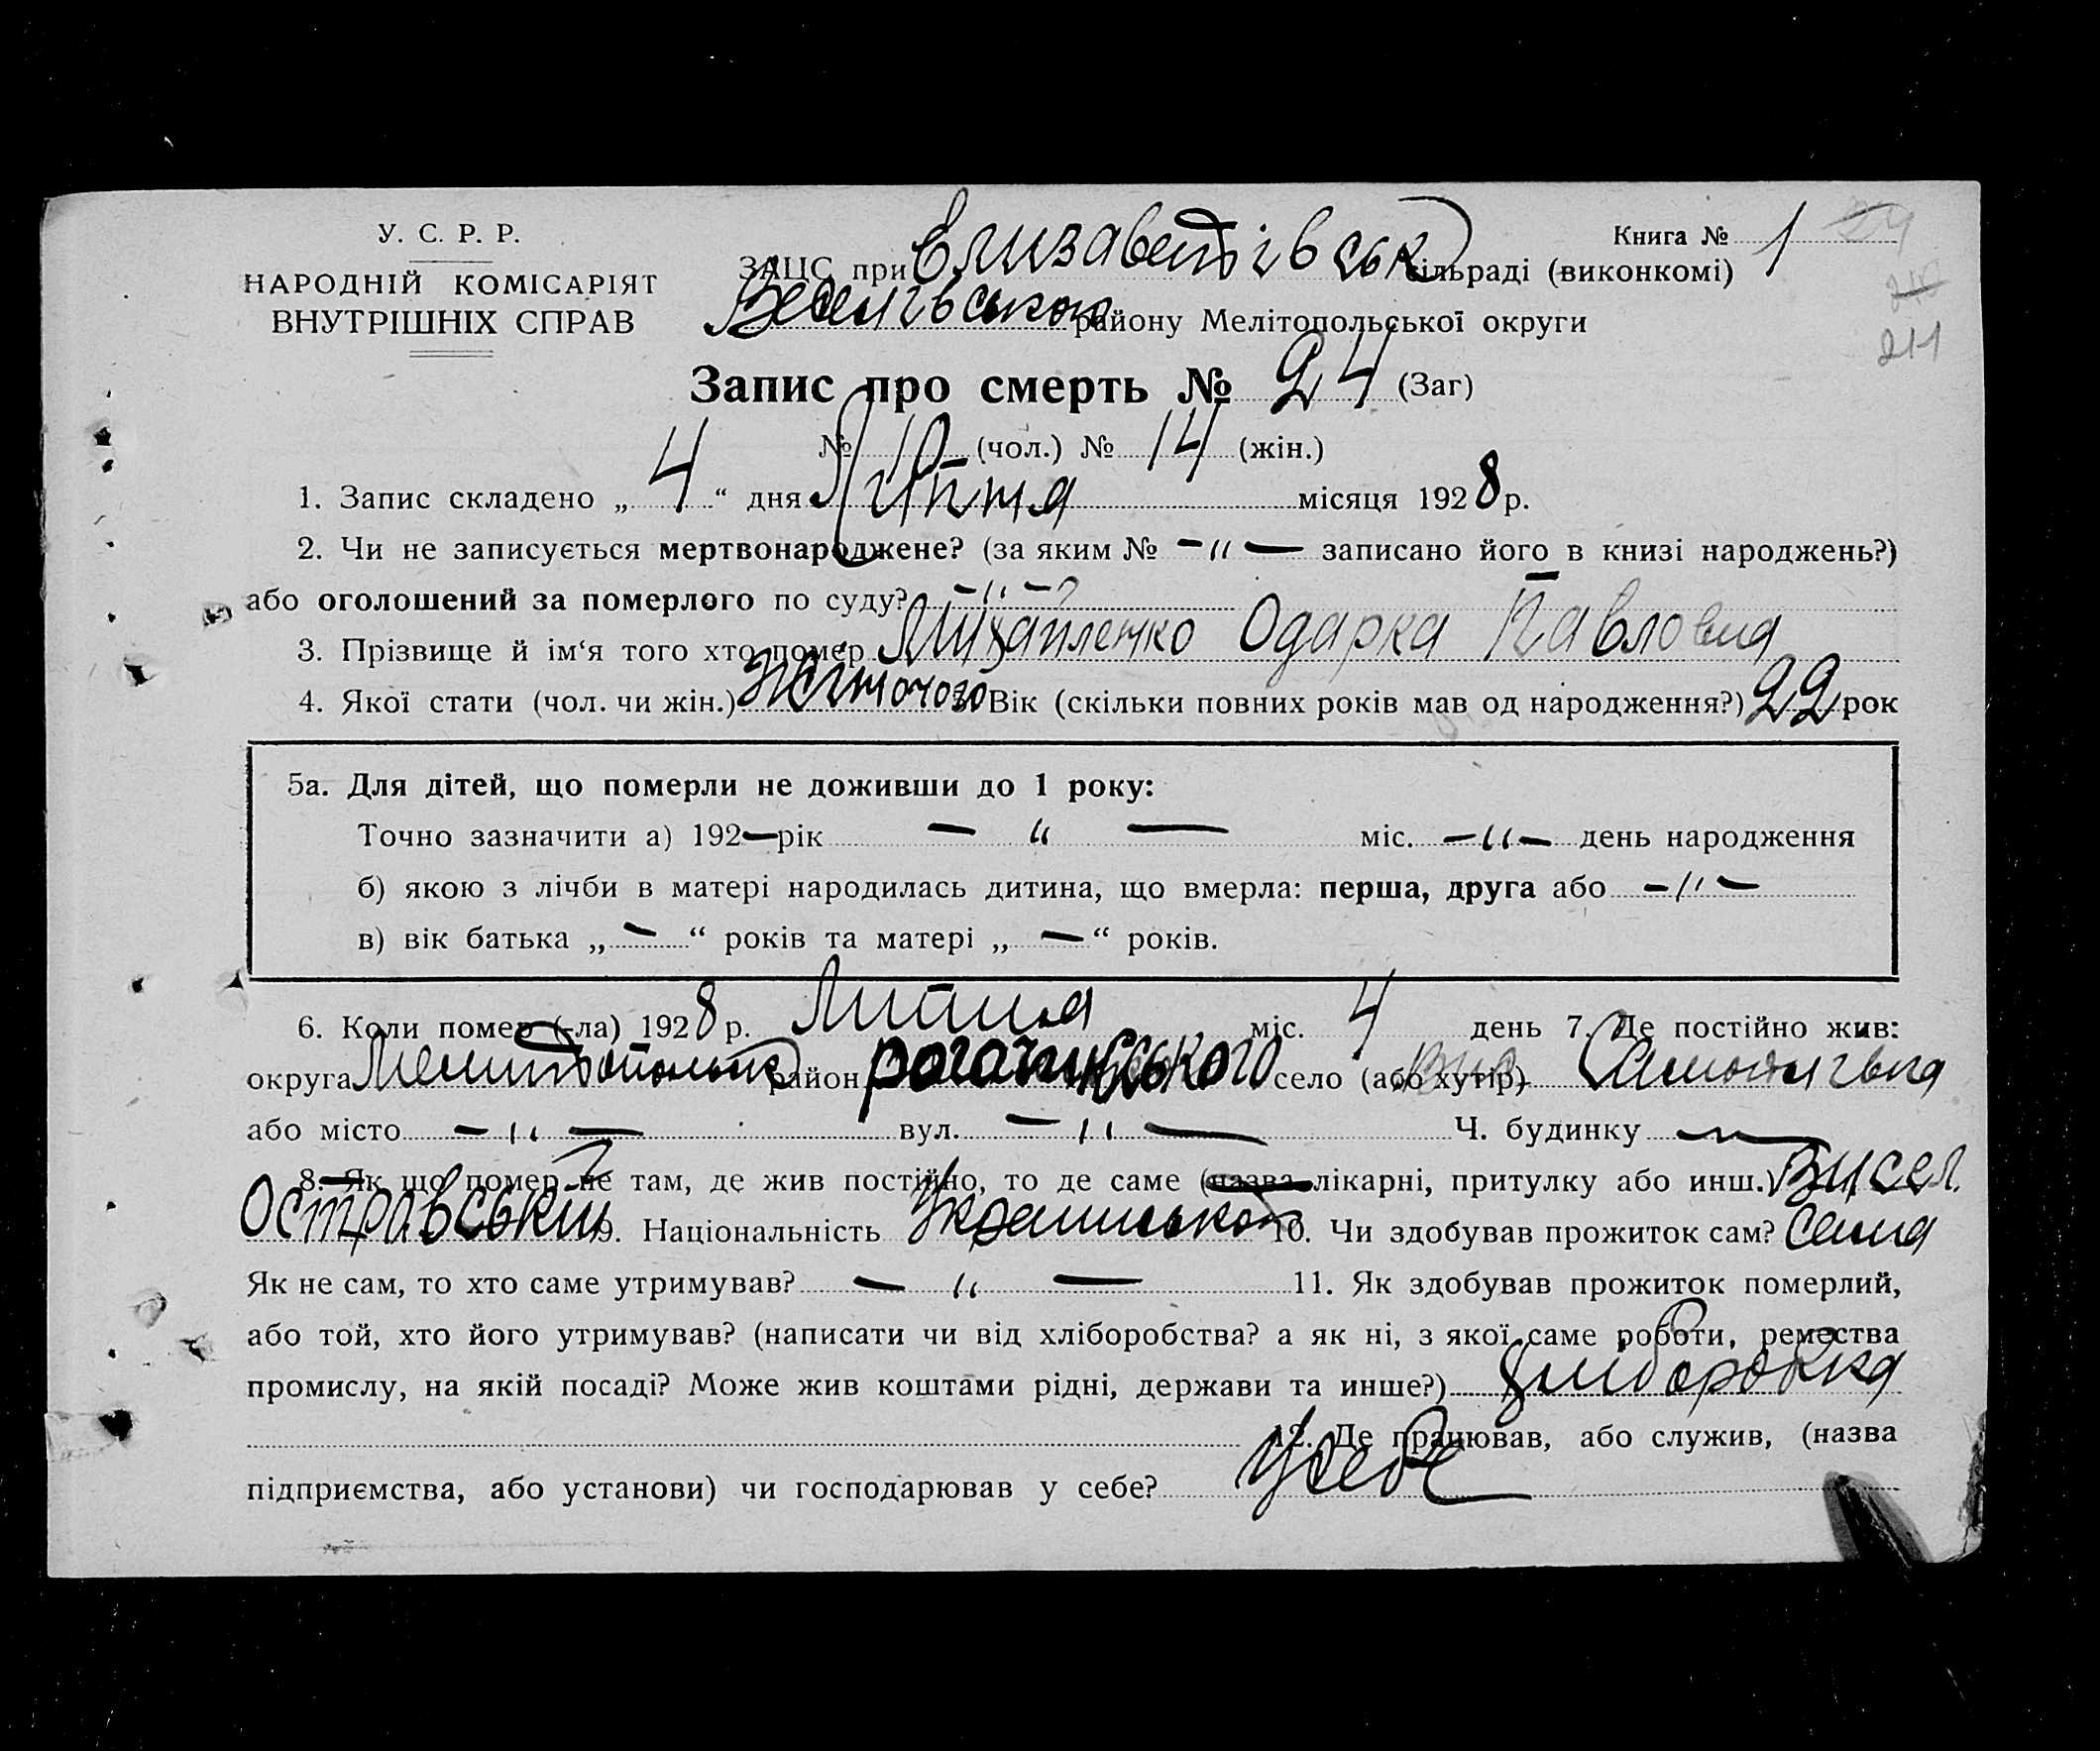 У. С. Р. Р.
НАРОДНІЙ КОМІСАРІЯТ
ВНУТРІШНІХ СПРАВ
Книга № 1
24
211
ЗАЦС при Єлизаветівськ сільраді (виконкомі)
Веселівського району Мелітопольської округи
Запис про смерть № 24 (Заг)
№ 10 (чол.) № 14 (жін.)
1. Запис складено „ 4 “ дня Липня місяця 1928 р.
2. Чи не записується мертвонароджене? (за яким № – " – записано його в книзі народжень?)
або оголошений за померлого по суду? – " –
3. Прізвище й ім‘я того хто помер Михайленко Одарка Павловна
4. Якої стати (чол. чи жін.) Жіночого 5. Вік (скільки повних років мав од народження?) 22 рок
5а. Для дітей, що померли не доживши до 1 року:
Точно зазначити а) 192– рік – " – міс. – " – день народження
б) якою з лічби в матері народилась дитина, що вмерла: перша, друга або – " –
в) вік батька „ – “ років та матері „ – “ років.
6. Коли помер (-ла) 1928 р. Липня міс. 4 день 7. Де постійно жив:
округа Мелитопольськ район рогачикського село (або хутір)
або місто – " – вул. – " – Ч. будинку –
8. Як що помер не там, де жив постійно, то де саме (назва лікарні, притулку або инш.) Висел.
Островський 9. Національність Українського 10. Чи здобував прожиток сам? Сама
Як не сам, то хто саме утримував? – " – 11. Як здобував прожиток померлий,
або той, хто його утримував? (написати чи від хліборобства? а як ні, з якої саме роботи, ремества
промислу, на якій посаді? Може жив коштами рідні, держави та инше?) хлиборобка
12. Де працював, або служив, (назва
підприємства, або установи) чи господарював у себе? У себе